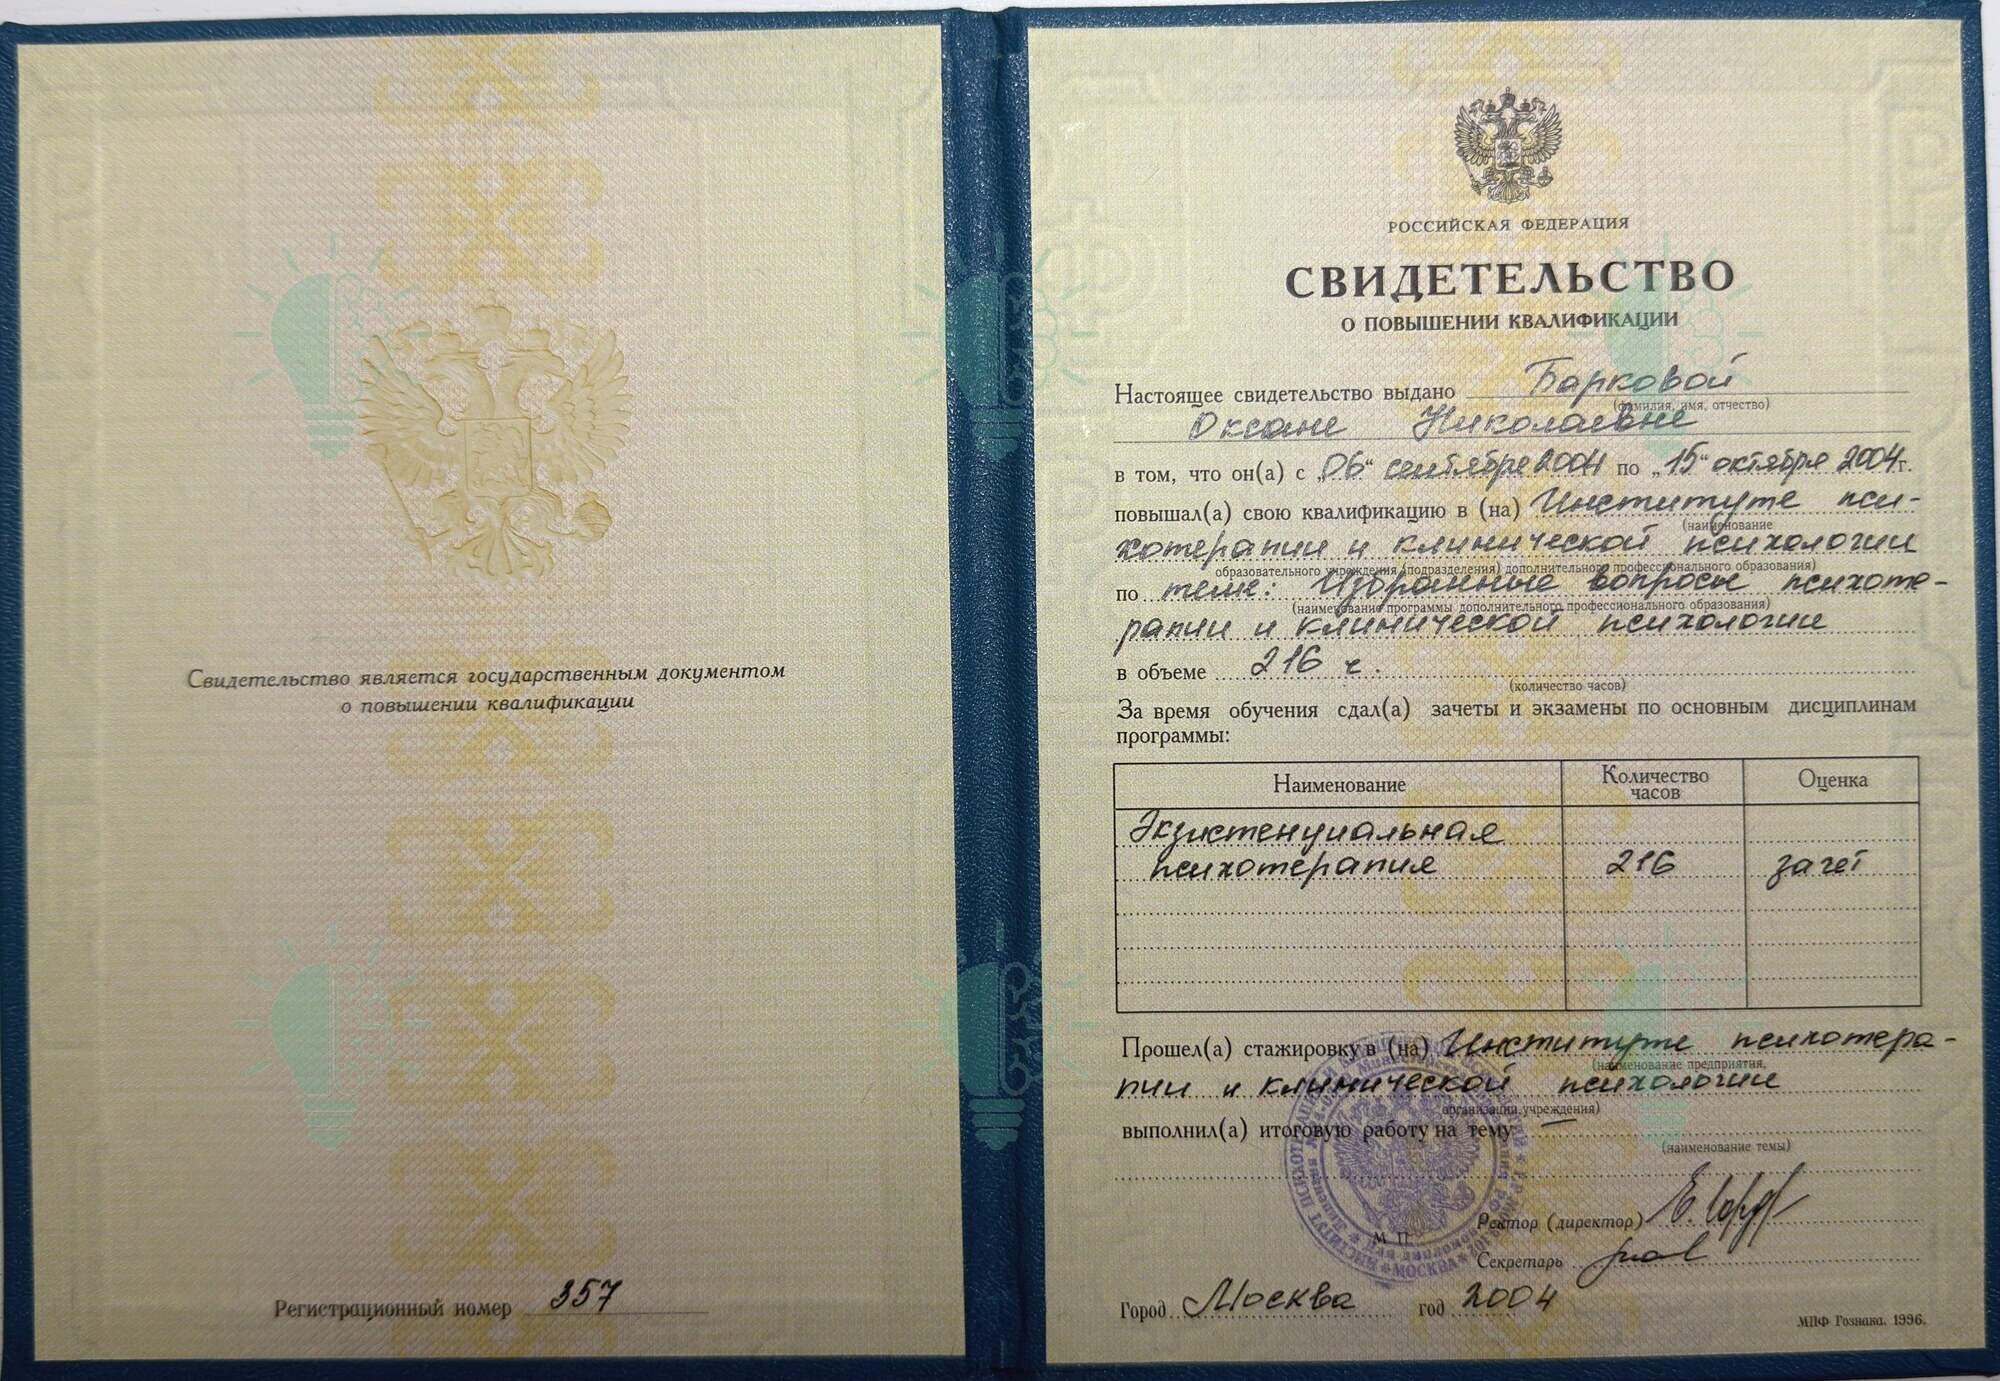 Свидетельство является государственным документом
о повышении квалификации
Регистрационный номер 357
РОССИЙСКАЯ ФЕДЕРАЦИЯ
СВИДЕТЕЛЬСТВО
О ПОВЫШЕНИИ КВАЛИФИКАЦИИ
Настоящее свидетельство выдано Барковой
(фамилия, имя, отчество)
Оксане Николаевне
в том, что он(а) с „06“ сентября 2004 по „15“ октября 2004г.
повышал(а) свою квалификацию в (на) Институте пси-
(наименование
хотерапии и клинической психологии
образовательного учреждения (подразделения) дополнительного профессионального образования)
по теме: Избранные вопросы психоте-
(наименование программы дополнительного профессионального образования)
рапии и клинической психологии
в объеме 216 ч.
(количество часов)
За время обучения сдал(а) зачеты и экзамены по основным дисциплинам
программы:
Наименование Количество часов Оценка
Экзистенциальная
психотерапия 216 зачет
Прошел(а) стажировку в (на) Институте психотера-
(наименование предприятия,
пии и клинической психологии
организации, учреждения)
выполнил(а) итоговую работу на тему —
(наименование темы)
Ректор (директор)
М П
Секретарь
МОСКВА
Город Москва год 2004
МПФ Гознака. 1996.